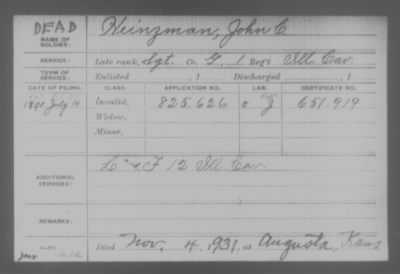 DEAD
NAME OF SOLDIER: Heinzman, John C
SERVICE: Late rank, Sgt. Co. G, 1 Reg't Ill. Cav.
TERM OF SERVICE: Enlisted , 1 Discharged , 1
DATE OF FILING. CLASS. APPLICATION NO. LAW. CERTIFICATE NO.
1890 July 14 Invalid, 825.626 651.919
Widow,
Minor,
ADDITIONAL SERVICES: L & F 12 Ill. Cav.
REMARKS:
Died Nov. 4, 1931, at Augusta, Kans